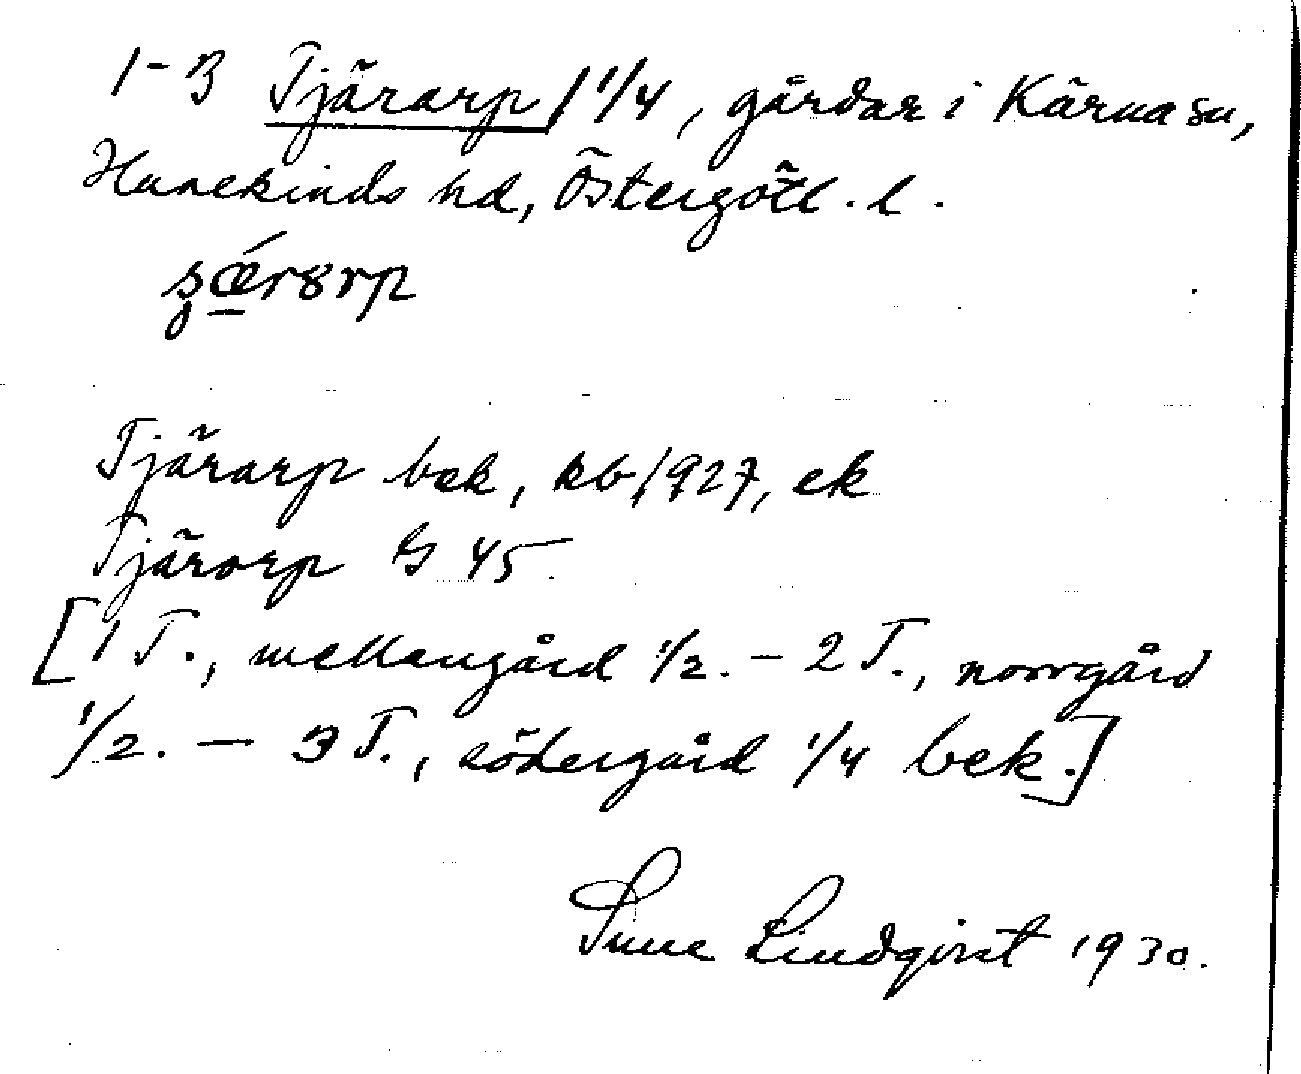 1-3 Tjärarp 1 1/4, gårdar i Kärna sn,
Hanekinds hd, Östergötl. l.
ʂǽrɞrp
Tjärarp bek, kb 1927, ek
Tjärorp G 45.
[1 T., mellangård 1/2. - 2 T., norrgård
1/2. - 3 T., södergård 1/4 bek.]
Sune Lindqvist 1930.